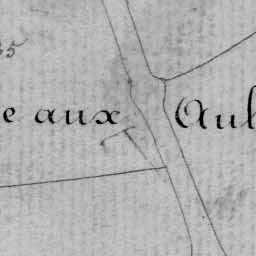 e aux Aul